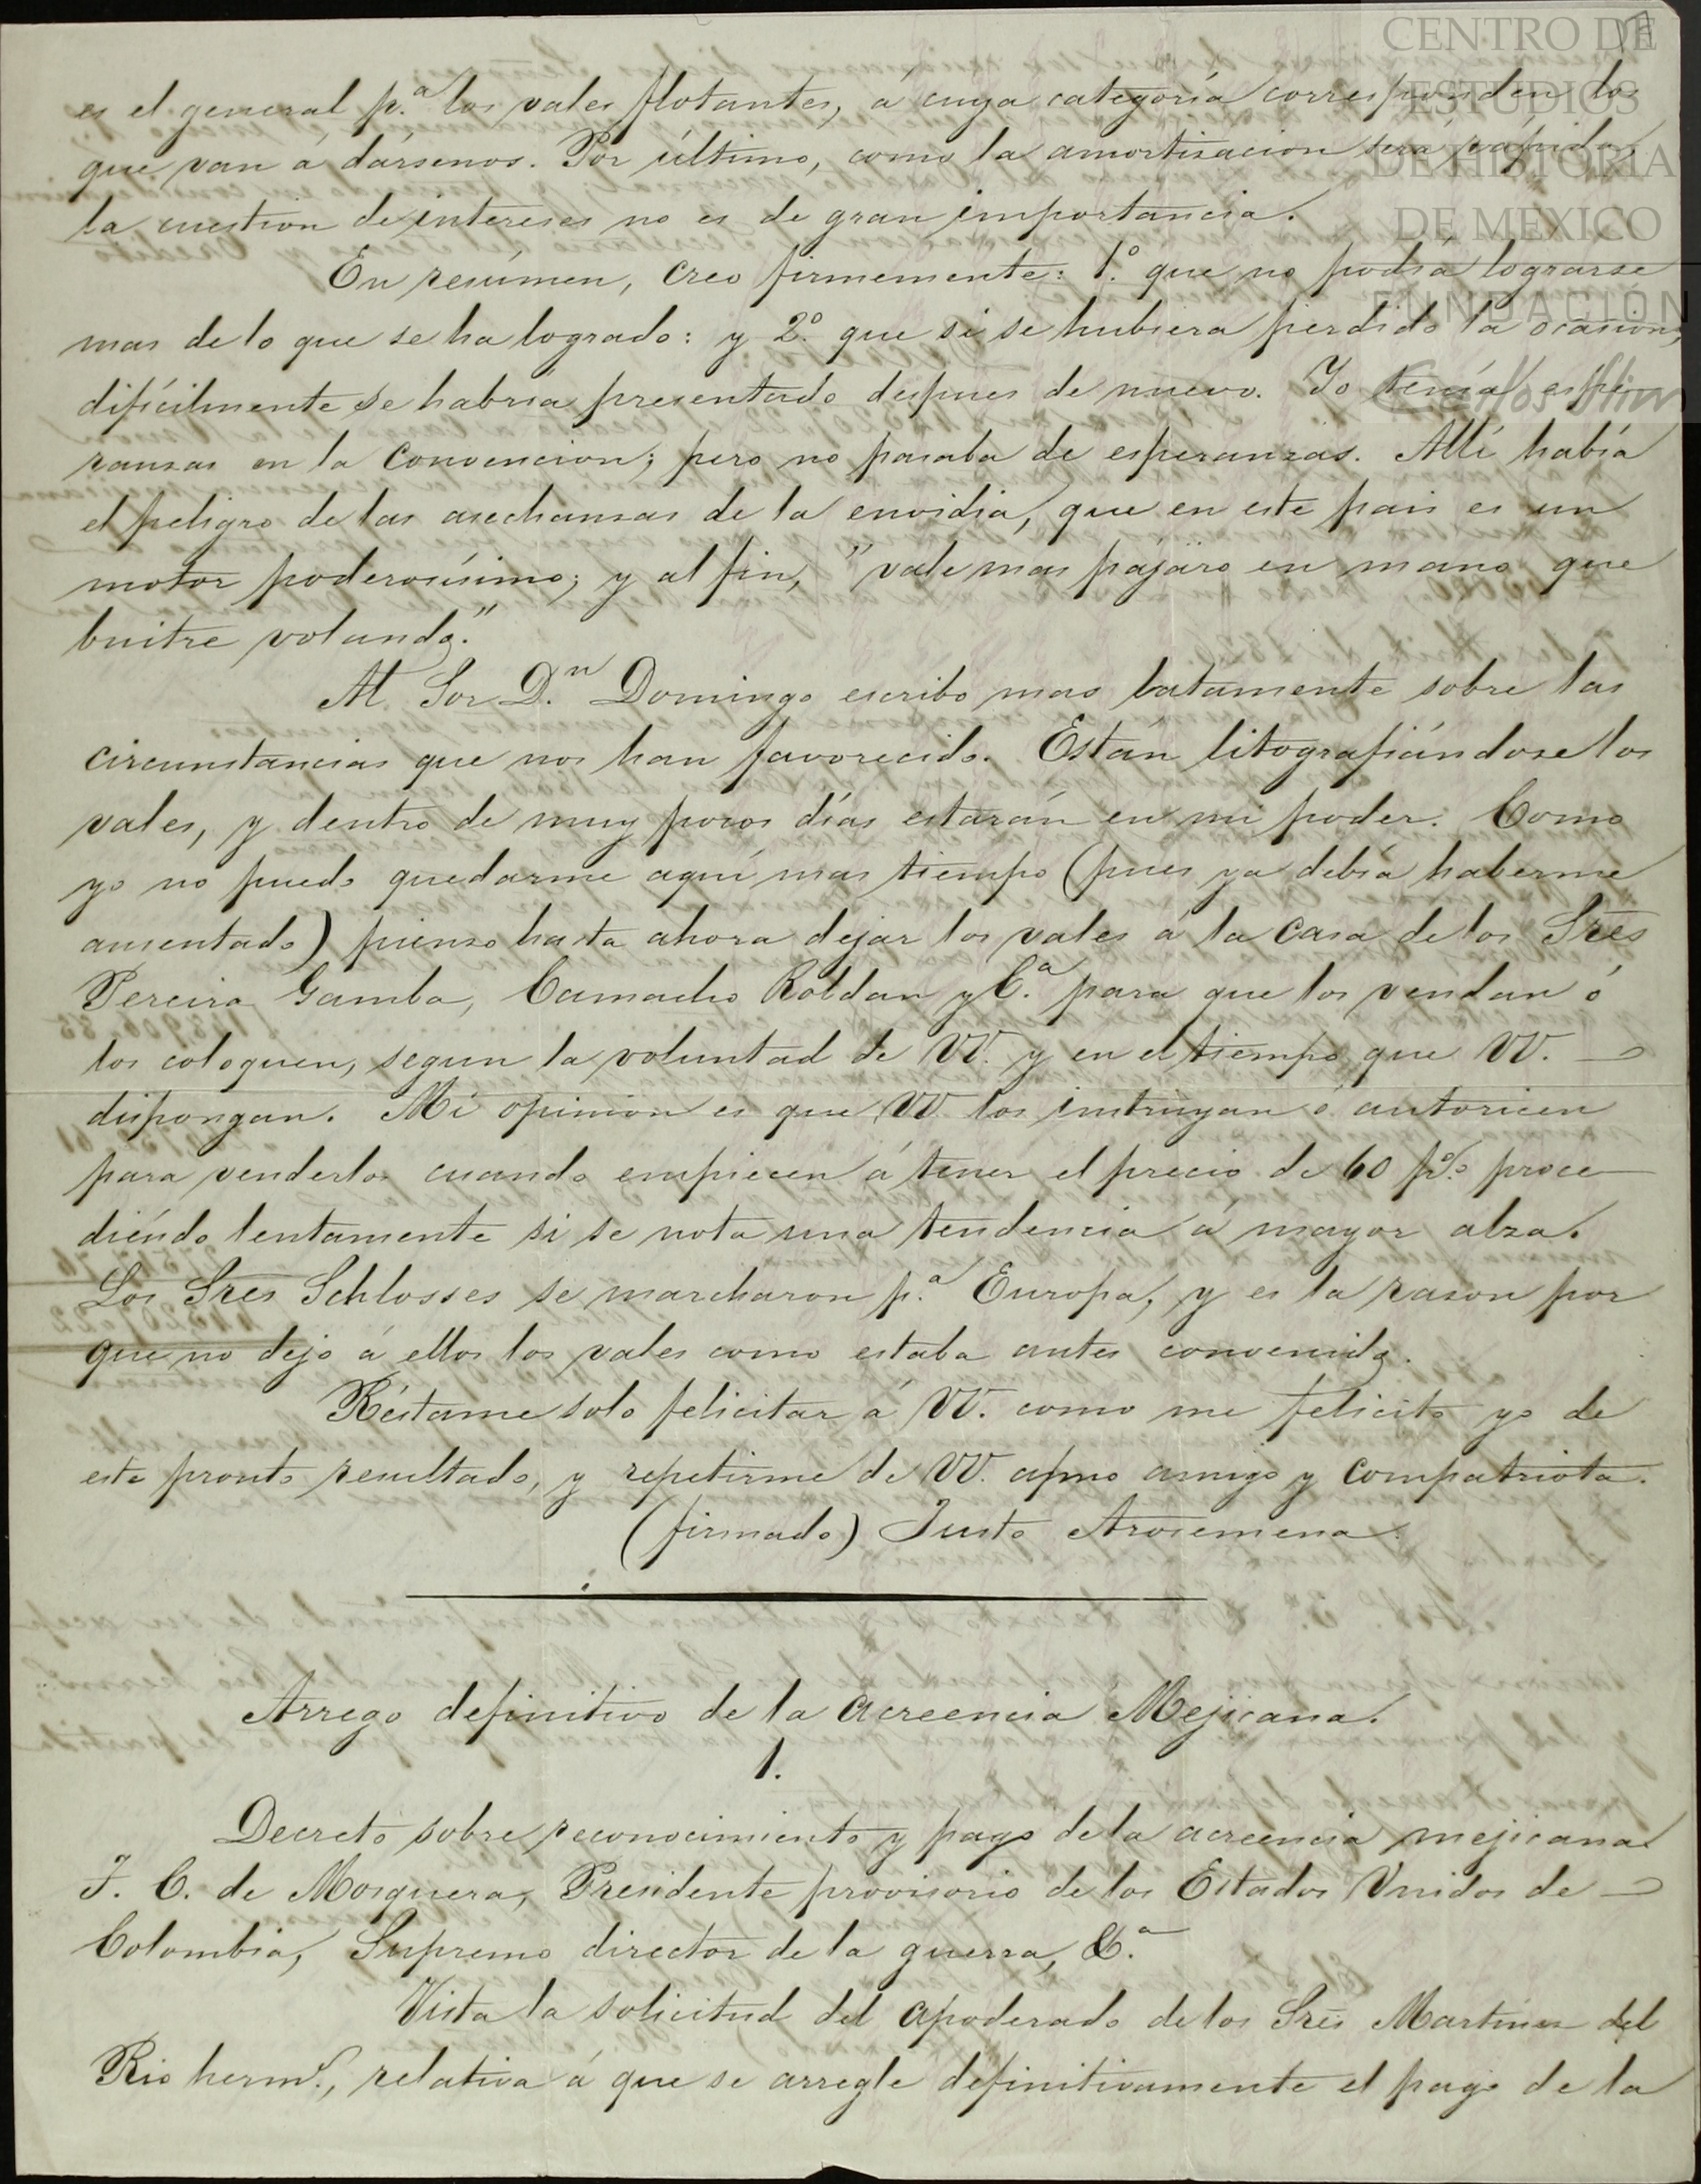 CENTRO DE
ESTUDIOS
DE HISTORIA
DE MEXICO
FUNDACIÓN
Carlos Slim
es el general p.ª los vales flotantes, á cuya categoría corresponden los
que van á dársenos. Por último, como la amortisacion será rápida,
la cuestion de intereses no es de gran importancia.
En resúmen, creo firmemente: 1.º que no podía lograrse
mas de lo que se ha logrado: y 2.º que si se hubiera perdido la ocasion,
difícilmente se habría presentado despues de nuevo. Yo tenía espe
ranzas en la Convencion; pero no pasaba de esperanzas. Allí había
el peligro de las asechanzas de la envidia, que en este pais es un
motor poderosísimo; y al fin, "vale mas pájaro en mano que
buitre volando."
Al Sor D.n Domingo escribo mas latamente sobre las
circunstancias que nos han favorecido. Están litografiándose los
vales, y dentro de muy pocos días estarán en mi poder. Como
yo no puedo quedarme aquí mas tiempo (pues ya debía haberme
ausentado) pienso hasta ahora dejar los vales á la casa de los Sres
Pereira Gamba, Camacho Roldan y C.ª para que los vendan ó
los coloquen, segun la voluntad de VV. y en el tiempo que VV.
dispongan. Mi opinion es que VV. los instruyan ó autoricen
para venderlos cuando empiecen á tener el precio de 60 p% proce
diéndo lentamente si se nota una tendencia á mayor alza.
Los Sres Schlosses se marcharon p.ª Europa, y es la razon por
que no dejo á ellos los vales como estaba antes convenido.
Réstame solo felicitar á VV. como me felicito yo de
este pronto resultado, y repetirme de VV. afmo amigo y compatriota.
(firmado) Justo Arosemena.
Arrego definitivo de la acreencia Mejicana.
1.
Decreto sobre reconocimiento y pago de la acreencia mejicana
T. C. de Mosquera, Presidente provisorio de los Estados Unidos de
Colombia, Supremo director de la guerra, &.ª
Vista la solicitud del apoderado de los Sres Martinez del
Rio herms., relativa á que se arregle definitivamente el pago de la